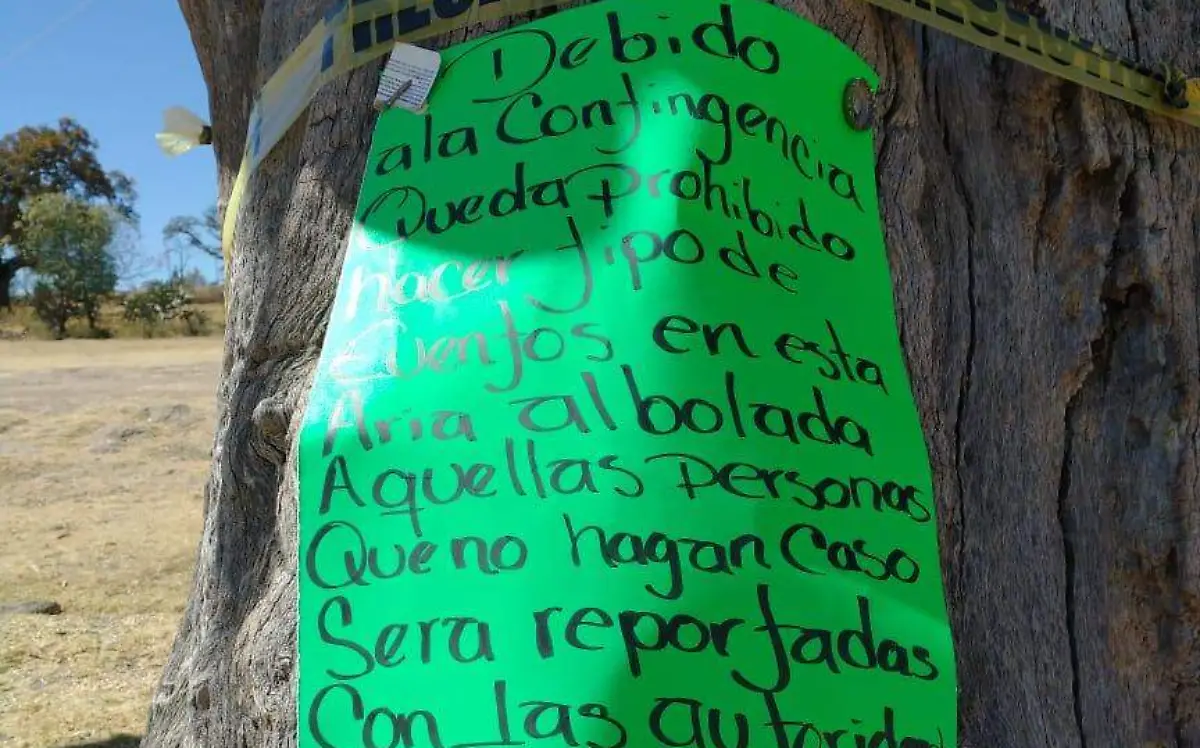 Debido
a la Contingencia
Queda Prohibido
hacer tipo de
Eventos en esta
Aria albolada
Aquellas Personas
Que no hagan Caso
Sera reportadas
Con las autoridad